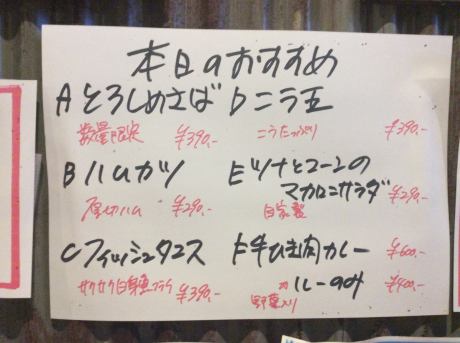 本日のおすすめ
Aとろしめさば
数量限定 ¥390.-
Bハムカツ
厚切ハム ¥290.-
Cフィッシュタコス
サクサク白身魚フライ ¥390.-
Dニラ玉
ニラたっぷり ¥390.-
Eツナとコーンの
マカロニサラダ
自家製 ¥290.-
F牛ひき肉カレー ¥600.-
野菜入り カレーのみ ¥400.-